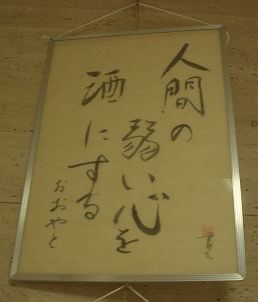 人間の
弱い心を
酒にする
おおやと